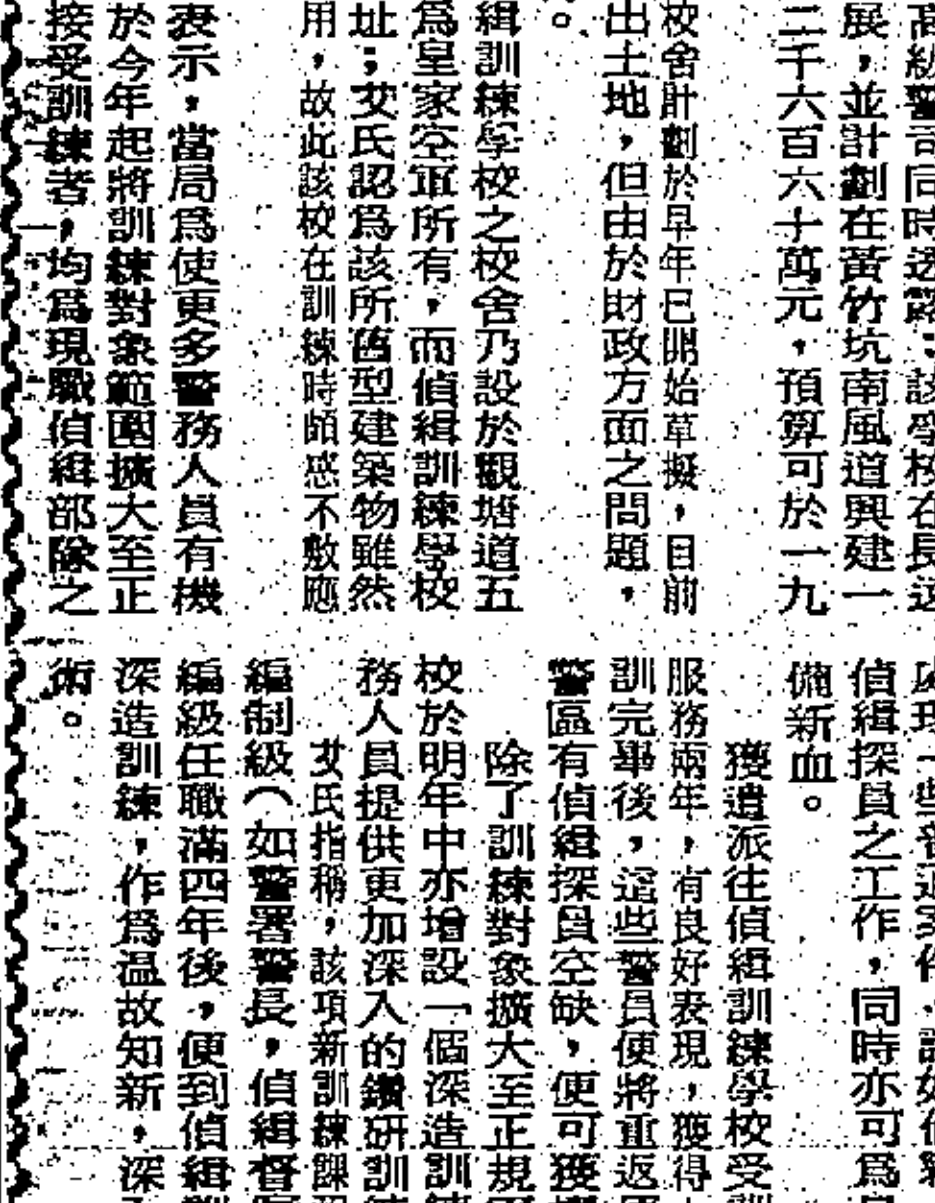 高級警司同時透露：該學校在長遠
展，並計劃在黃竹坑南風道興建一
二千六百六十萬元，預算可於一九
校舍計劃於早年已開始草擬，目前
出土地，但由於財政方面之問題，
。
緝訓練學校之校舍乃設於觀塘道五
爲皇家空軍所有，而偵緝訓練學校
址；艾氏認爲該所舊型建築物雖然
用，故此該校在訓練時頗感不敷應
表示，當局爲使更多警務人員有機
於今年起將訓練對象範圍擴大至正
接受訓練者，均爲現職偵緝部隊之
一些普通案件，諸如
偵緝探員之工作，同時亦可爲
備新血。
獲遣派往偵緝訓練學校受訓
服務兩年，有良好表現，獲得
訓完畢後，這些警員便將重返
警區有偵緝探員空缺，便可獲
除了訓練對象擴大至正規
校於明年中亦增設一個深造訓練
務人員提供更加深入的鑽研訓
艾氏指稱，該項新訓練課
編制級（如警署警長，偵緝督
編級任職滿四年後，便到偵緝
深造訓練，作爲溫故知新，深
術。